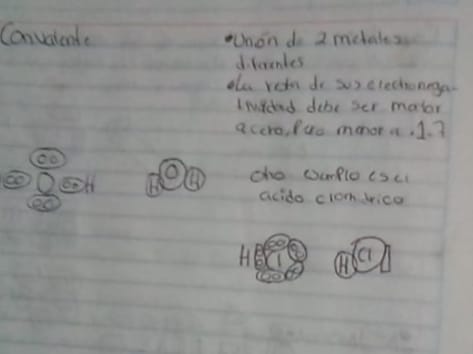 Convalente
• Unión de 2 metales
diferentes
• La resta de sus electronega
tividad debe ser mayor
a cero, pero menor a 1.7
otro ejemplo es el
acido clorhidrico
H
H O H
H
H Cl